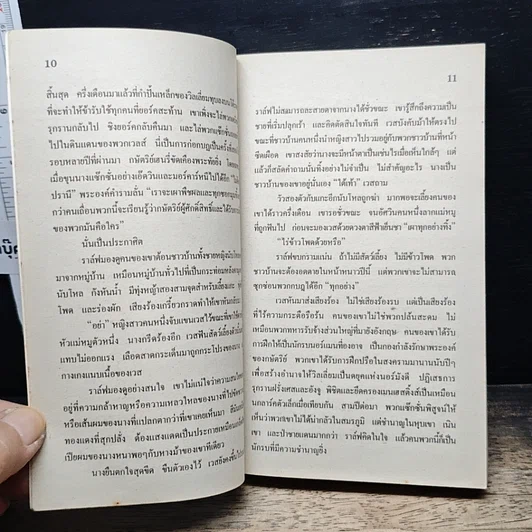 10
สิ้นสุด ครึ่งเดือนมาแล้วที่กำปั้นเหล็กของวิลเลี่ยมทุบลงบน
ที่จะทำให้ข้ารับใช้ทุกคนที่ยอร์คสะท้าน เขาเพิ่งจะไล่พวก
รุกรานกลับไป ชิงยอร์คกลับคืนมา และไล่พวกแซ็กซั่น
ไปในดินแดนของพวกเวลส์ นี่เป็นการก่อกบฏเป็นครั้งที่
รอบหลายปีที่ผ่านมา กษัตริย์เตรริ่ขัดเคืองพระทัยยิ่ง โดยเฉพาะ
ที่ขุนนางแซ็กซั่นอย่างเอ็ดวินและมอร์คาร์หนีไปได้อีก
ปรานี" พระองค์คำรามลั่น "เราจะเผาพืชผลและทุกซอกทุกมุม
กว่าคนเถื่อนพวกนี้จะเรียนรู้ว่ากษัตริย์ผู้ศักดิ์สิทธิ์และเจ้าชีวิต
ของพวกมันคือใคร"
นั่นเป็นประกาศิต
ราล์ฟมองดูคนของเขาต้อนชาวบ้านทั้งชายหญิง
มาจากหมู่บ้าน เหมือนหมู่บ้านทั่วไปที่เป็นกระท่อมหลังคามุง
นับโหล กังหันน้ำ มีทุ่งหญ้าสองสามจุดสำหรับเลี้ยงแกะ
โพด และร่องผัก เสียงร้องเกรี้ยวกราดทำให้เขาหันกลับ
"อย่า" หญิงสาวคนหนึ่งจับแขนเวสไว้ขณะที่เขา
หัวแม่หมูตัวหนึ่ง นางกรีดร้องอีก เวสฟันสัตว์เลี้ยงตัวนั้น
แทบไม่ออกแรง เลือดสาดกระเด็นมาถูกกระโปรงของนาง
กางเกงแนบเนื้อของเวส
ราล์ฟมองดูอย่างสนใจ เขาไม่แน่ใจว่าความสนใจ
อยู่ที่ความกล้าหาญหรือความเหลวไหลของนางที่ใช้
หรือเส้นผมของนางที่แปลกตากว่าที่เขาเคยเห็นมา
ทองแดงที่สุกปลั่ง ต้องแสงแดดเป็นประกายเหมือน
เปียผมของนางหนาพอๆกับหางม้าของเขาทีเดียว
นางยืนตกใจสุดขีด ขืนตัวเองไว้ เวสยังคงขึ้น
11
ราล์ฟไม่สามารถละสายตาจากนางได้ชั่วขณะ เขารู้สึกถึงความเป็น
ชายที่เริ่มปลุกเร้า และคิดตัดสินใจทันที เวสบังคับม้าให้ตรงไป
ขณะที่ชาวบ้านคนหนึ่งนำหญิงสาวไปรวมอยู่กับพวกชาวบ้านที่หน้า
ซีดเผือด เขาสงสัยว่านางจะมีหน้าตาเป็นเช่นไรเมื่อเห็นใกล้ๆ แต่
แล้วก็สลัดคำถามนั้นทิ้ง ไม่สำคัญอย่างไร ไม่สำคัญอะไร นางเป็น
ชาวบ้านของเขาอยู่นั่นเอง "ได้เท้า" เวสถาม
วัวสองตัวกับแกะอีกนับโหลถูกฆ่า มากพอจะเลี้ยงคนของ
เขาได้ราวครึ่งเดือน เขารอชั่วขณะ จนอัศวินคนหนึ่งลากแม่หมู
ที่ถูกฟันไป ก่อนจะมองเวสด้วยดวงตาสีฟ้าเย็นชา "เผาทุกอย่างทิ้ง"
"ไร่ข้าวโพดด้วยหรือ"
ราล์ฟขบกรามแน่น ถ้าไม่มีสัตว์เลี้ยง ไม่มีข้าวโพด พวก
ชาวบ้านจะต้องอดตายในหน้าหนาวปีนี้ แต่พวกเขาจะไม่สามารถ
ซุกซ่อนพวกกบฏได้อีก "ทุกอย่าง"
เวสหันมาส่งเสียงร้อง ไม่ใช่เสียงร้องรบ แต่เป็นเสียงร้อง
ที่ไร้ความกระตือรือร้น คนของเขาไม่ใช่พวกปล้นสะดม ไม่
เหมือนพวกทหารรับจ้างส่วนใหญ่ที่มายังอังกฤษ คนของเขาได้รับ
การฝึกให้เป็นนักรบนอร์แมนที่องอาจ เป็นกองกำลังรักษาพระองค์
ของกษัตริย์ พวกเขาได้รับการฝึกปรือในสงครามมานานนับปีๆ
เพื่อสร้างอำนาจให้วิลเลี่ยมเป็นดยุคแห่งนอร์มังดี ปฏิเสธการ
รุกรานฝรั่งเศสและอังจู พิชิตและยึดครองเมนเฮสติ้งส์เป็นเหมือน
กลลาร์คตัวเล็กเมื่อเทียบกัน สามปีต่อมา พวกแซ็กซั่นพิสูจน์ให้
เห็นว่าพวกเขาไม่ได้น่ากลัวในสมรภูมิ แต่ชำนาญในหุบเขา เนิน
เขา และป่าชายแดนมากกว่า ราล์ฟคิดในใจ แล้วคนพวกนี้ก็เป็น
นักรบที่มีความชำนาญยิ่ง